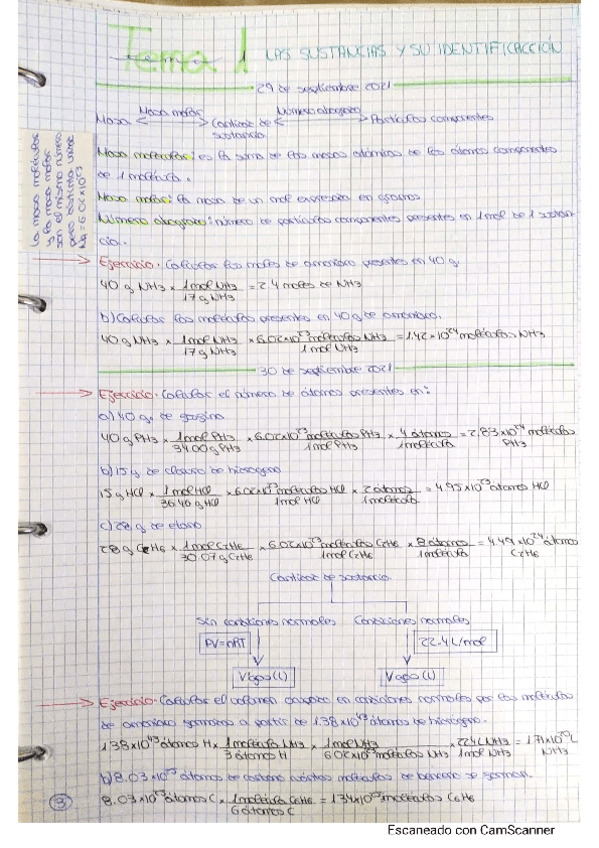 Tema 1 LAS SUSTANCIAS Y SU IDENTIFICACCIÓN
29 de septiembre 2021
Masa molar Número avogadro
Masa Cantidad de sustancia Partículas componentes
La masa molecular y la masa molar son el mismo número pero distinta unidad
NA = 6.02×10²³
Masa molecular: es la suma de las masas atómicas de los átomos componentes
de 1 molécula.
Masa molar: la masa de un mol expresada en gramos
Número avogadro: número de partículas componentes presentes en 1 mol de 1 sustan-
cia.
Ejercicio. Calcular los moles de amoniaco presentes en 40 g.
40 g NH3 × 1 mol NH3 / 17 g NH3 = 2.4 moles de NH3
b) Calcular las moléculas presentes en 40 g de amoniaco.
40 g NH3 × 1 mol NH3 / 17 g NH3 × 6.02×10²³ moléculas NH3 / 1 mol NH3 = 1.42×10²⁴ moléculas NH3
30 de septiembre 2021
Ejercicio. Calcular el número de átomos presentes en:
a) 40 g. de
40 g PH3 × 1 mol PH3 / 34.00 g PH3 × 6.02×10²³ moléculas PH3 / 1 mol PH3 × 4 átomos / 1 molécula = 2.83×10²⁴ moléculas PH3
b) 15 g de cloruro de hidrogeno
15 g HCl × 1 mol HCl / 36.46 g HCl × 6.02×10²³ moléculas HCl / 1 mol HCl × 2 átomos / 1 molécula = 4.95×10²³ átomos HCl
c) 28 g de etano
28 g C2H6 × 1 mol C2H6 / 30.07 g C2H6 × 6.02×10²³ moléculas C2H6 / 1 mol C2H6 × 8 átomos / 1 molécula = 4.49×10²⁴ átomos C2H6
Cantidad de sustancia
Sin condiciones normales Condiciones normales
PV=nRT 22.4 L/mol
Vgas (L) Vgas (L)
Ejercicio. Calcular el volumen ocupado en condiciones normales por las moléculas
de amoniaco formadas a partir de 138×10²³ átomos de hidrogeno.
átomos H × 1 molécula NH3 / 3 átomos H × 1 mol NH3 / 6.02×10²³ moléculas NH3 × 22.4 L NH3 / 1 mol NH3 = L NH3
b) 8.03×10²³ átomos de carbono cuántas moléculas de benceno se forman.
8.03×10²³ átomos C × 1 molécula C6H6 / 6 átomos C = 1.34×10²³ moléculas C6H6
3
Escaneado con CamScanner